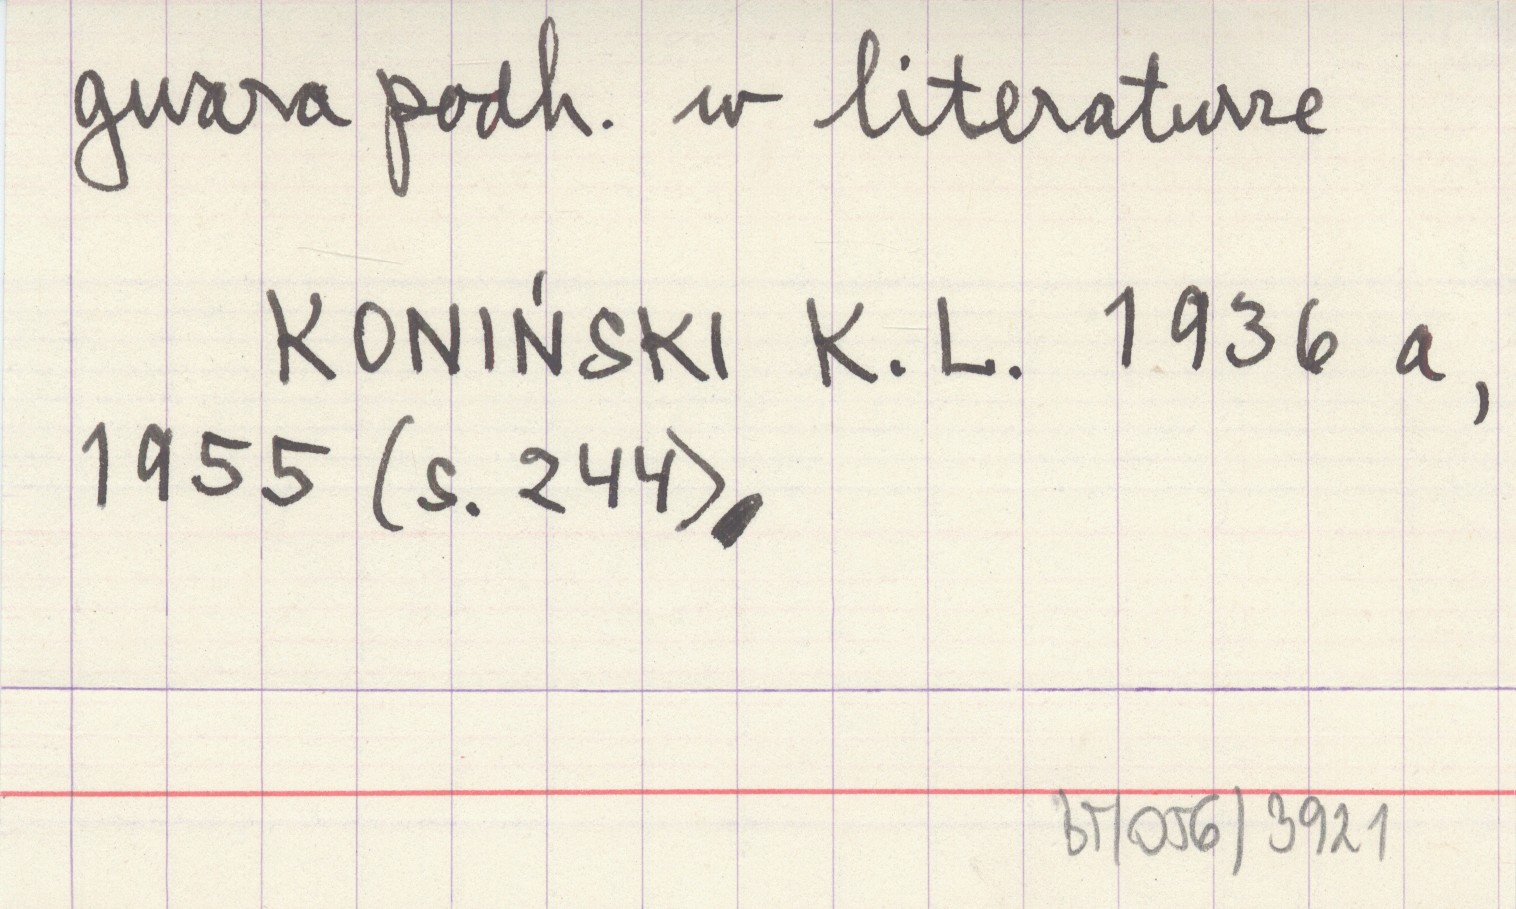 gwara podh. w literaturze
KONIŃSKI K.L. 1936 a,
1955 (s. 244)
bT/056/3921